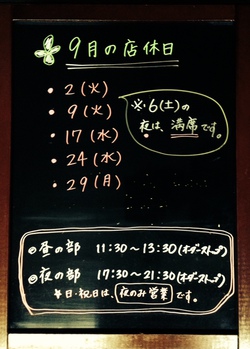 9月の店休日
・2(火)
・9(火)
・17(水)
・24(水)
・29(月)
※・6(土)の
夜は、満席です。
◎昼の部 11:30〜13:30(オーダーストップ)
◎夜の部 17:30〜21:30(オーダーストップ)
*日・祝日は、夜のみ営業です。